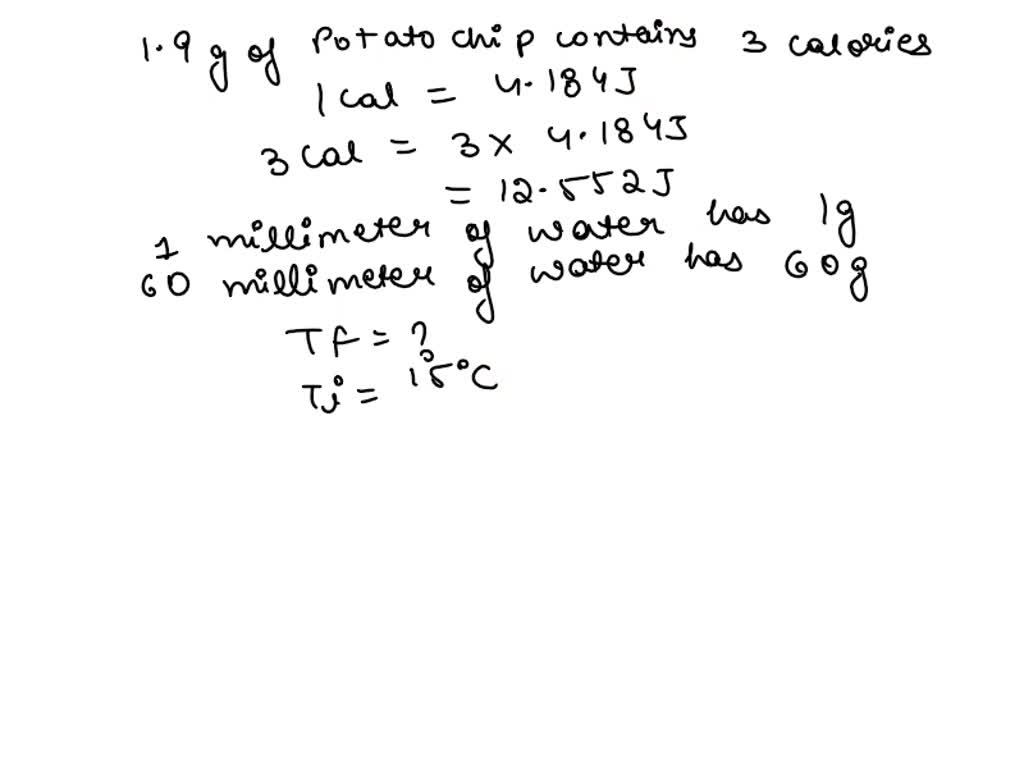 1.9 g of Potato chip contains 3 calories
1 cal = 4.184J
3 cal = 3 x 4.184J
= 12.552J
1 millimeter of water has 1g
60 millimeter of water has 60g
Tf = ?
Ti = 15°C